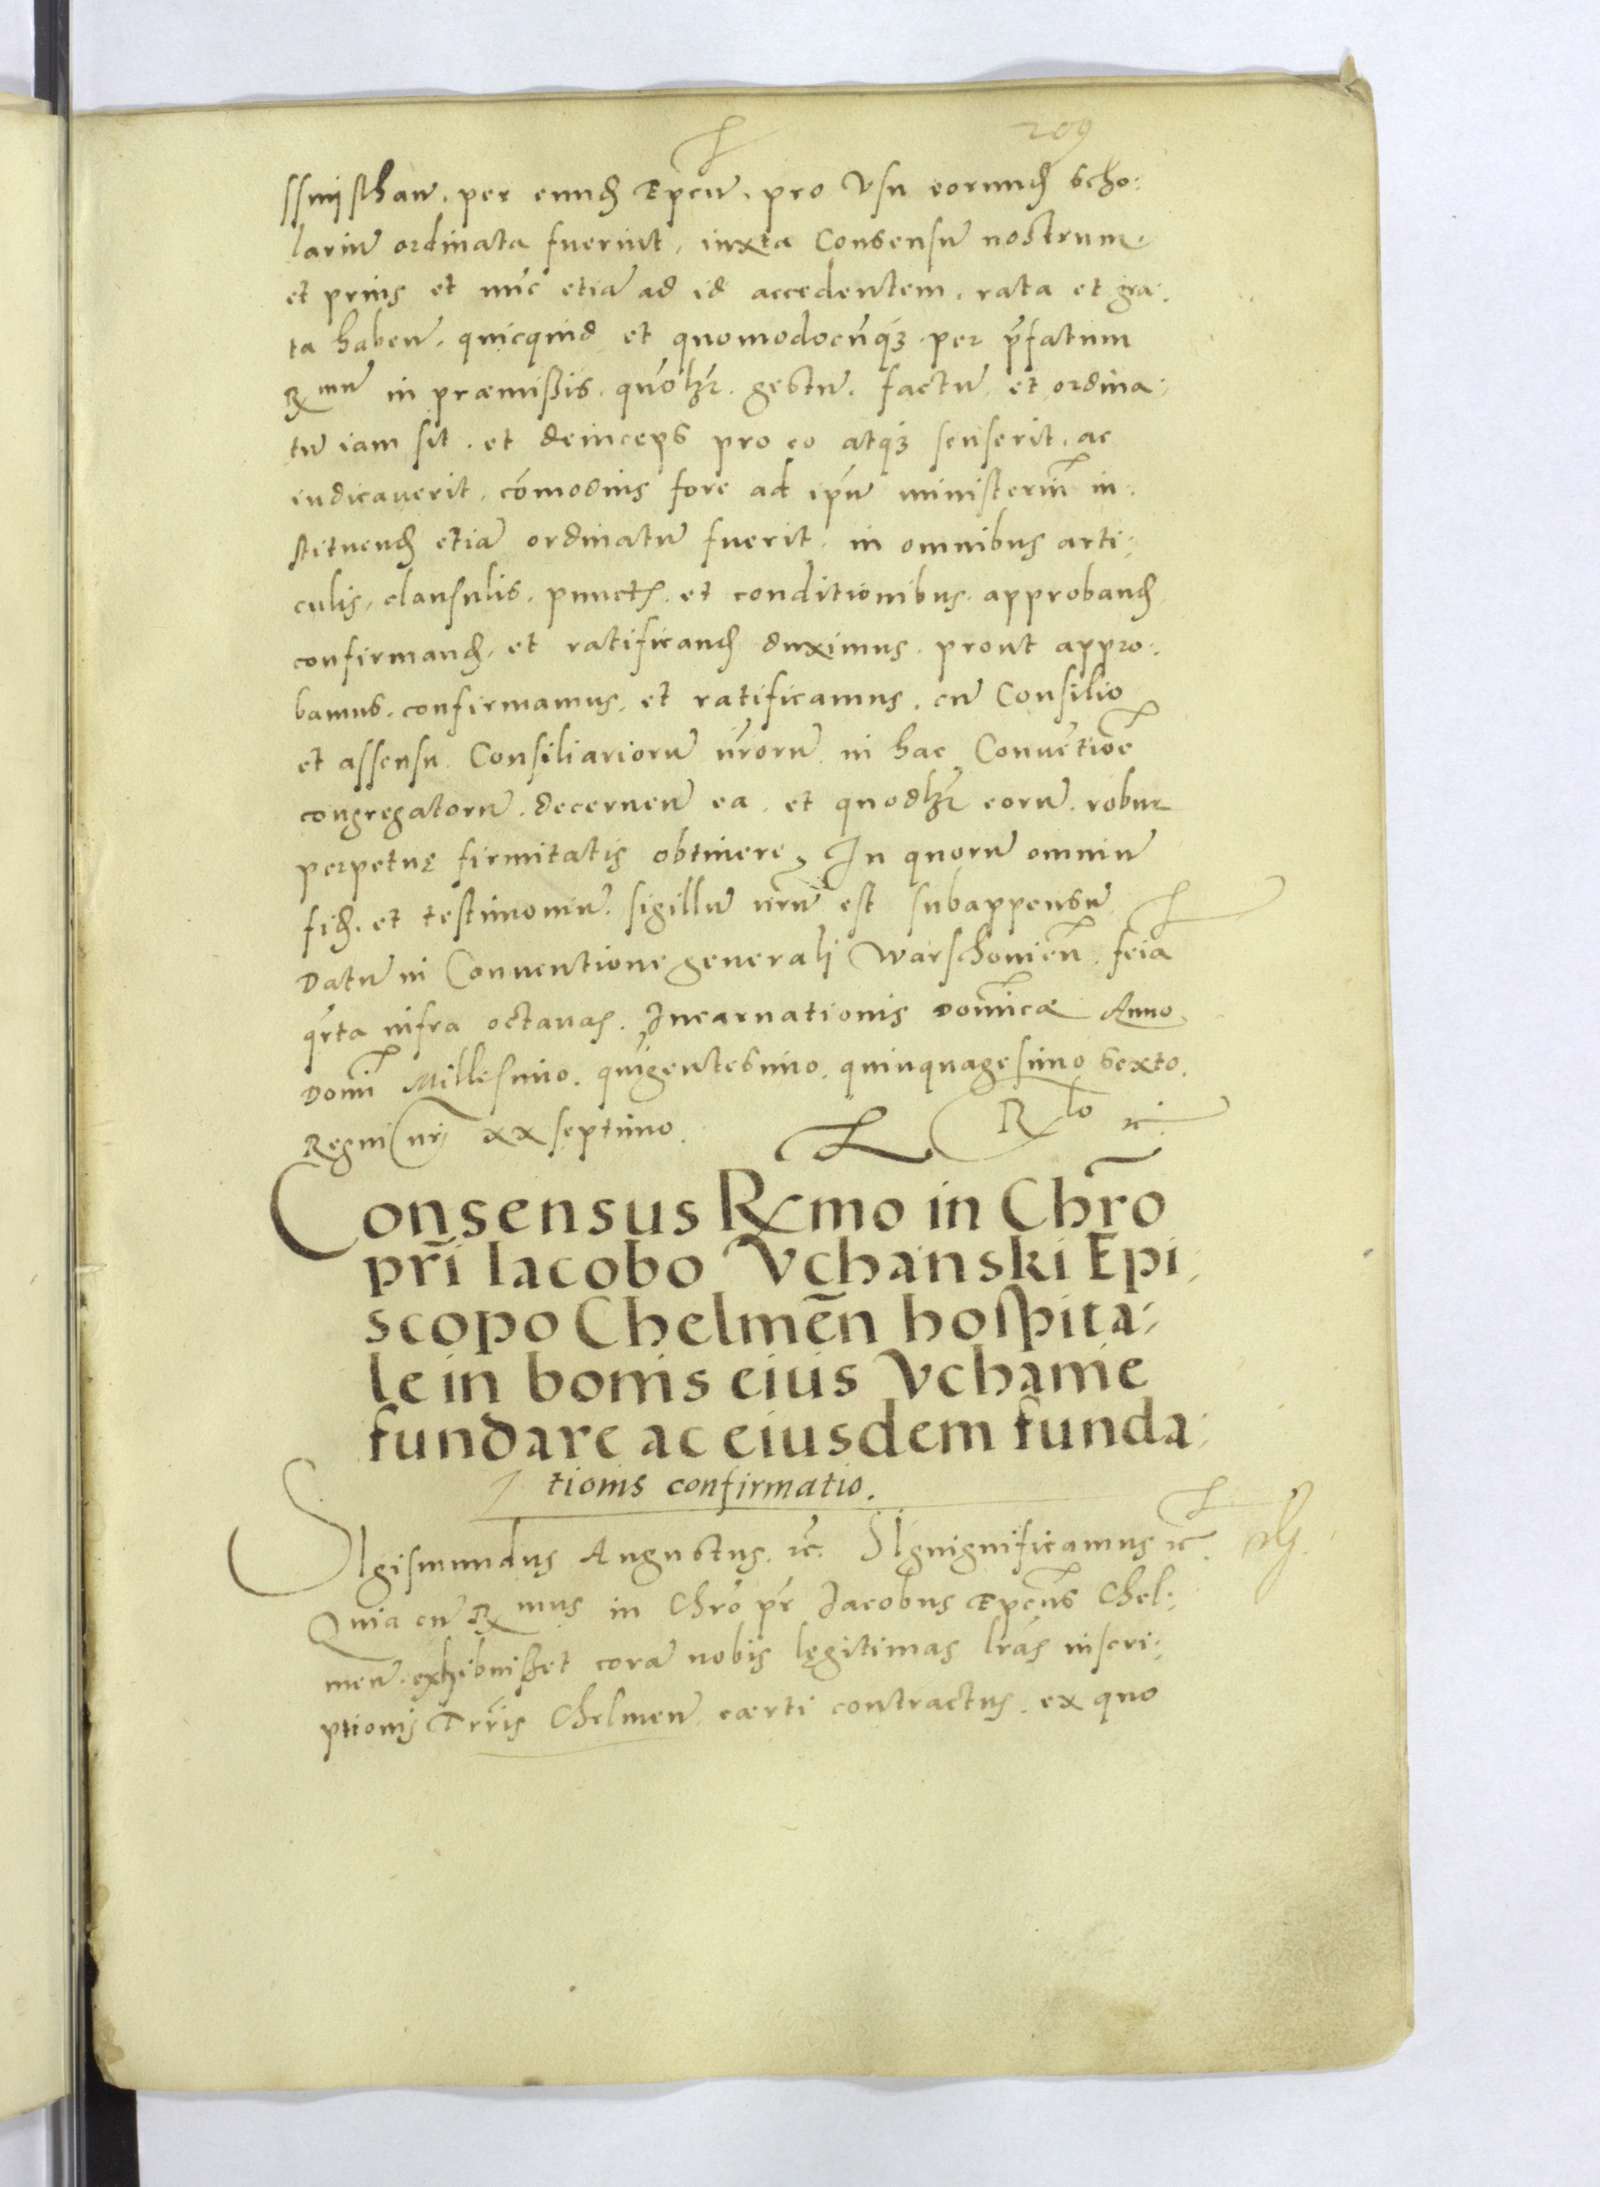 209
ssmischaū. per eundē Epcū. pro Vsu eorundē Scho:
lariū ordinata fuerint, iuxta Consensū nostrum
et prius et nūc etiā ad id accedentem, rata et gra:
ta habeñ. quicquid et quomodocūq3 per p̄fatum
Rmū in præmißis. quōlꝫ gestū. factū et ordina:
tū iam sit. et deinceps pro eo atq3 senserit, ac
iudicaverit, cōmodius fore ad ip̄ū ministeriū in:
stituendū etiā ordinatū fuerit. in omnibus arti:
culis, clausulis, punctis et conditionibus approband
confirmand, et ratificand duximus. prout appro:
bamus. confirmamus, et ratificamus, cū Consilio
et assensu Consiliariorū nr̄orū in hac Conventiōe
congregatorū. decerneñ ea. et quodlꝫ eorū. robur
perpetuę firmitatis obtinere. In quorū omniū
fid. et testimoniū. sigillū nr̄ū est subappensū
Datū in Conventione generali Warschovieñ. feīa
q̄rta infra octavas. Incarnationis Dominicæ Anno
Domi Millesimo. quīgentesimo. quinquagesimo sexto.
Regni nr̄i xx septimo. Rlo ꝛc
Consensus Rmo in Chr̄o
pr̄i Iacobo Vchanski Epi,
scopo Chelmēn hospita:
le in bonis eius Vchanie
fundare ac eiusdem funda:
tionis confirmatio.
SIgismundus Augustus. ꝛc. SIgnignificamus ꝛc
Quia cū Rmus in Chr̄o pr̄ Jacobus Epcus Chel:
meñ. exhibuißet corā nobis lęgitimas lr̄as inscri:
ptionis Trr̄is Chelmeñ. cærti contractus. ex quo